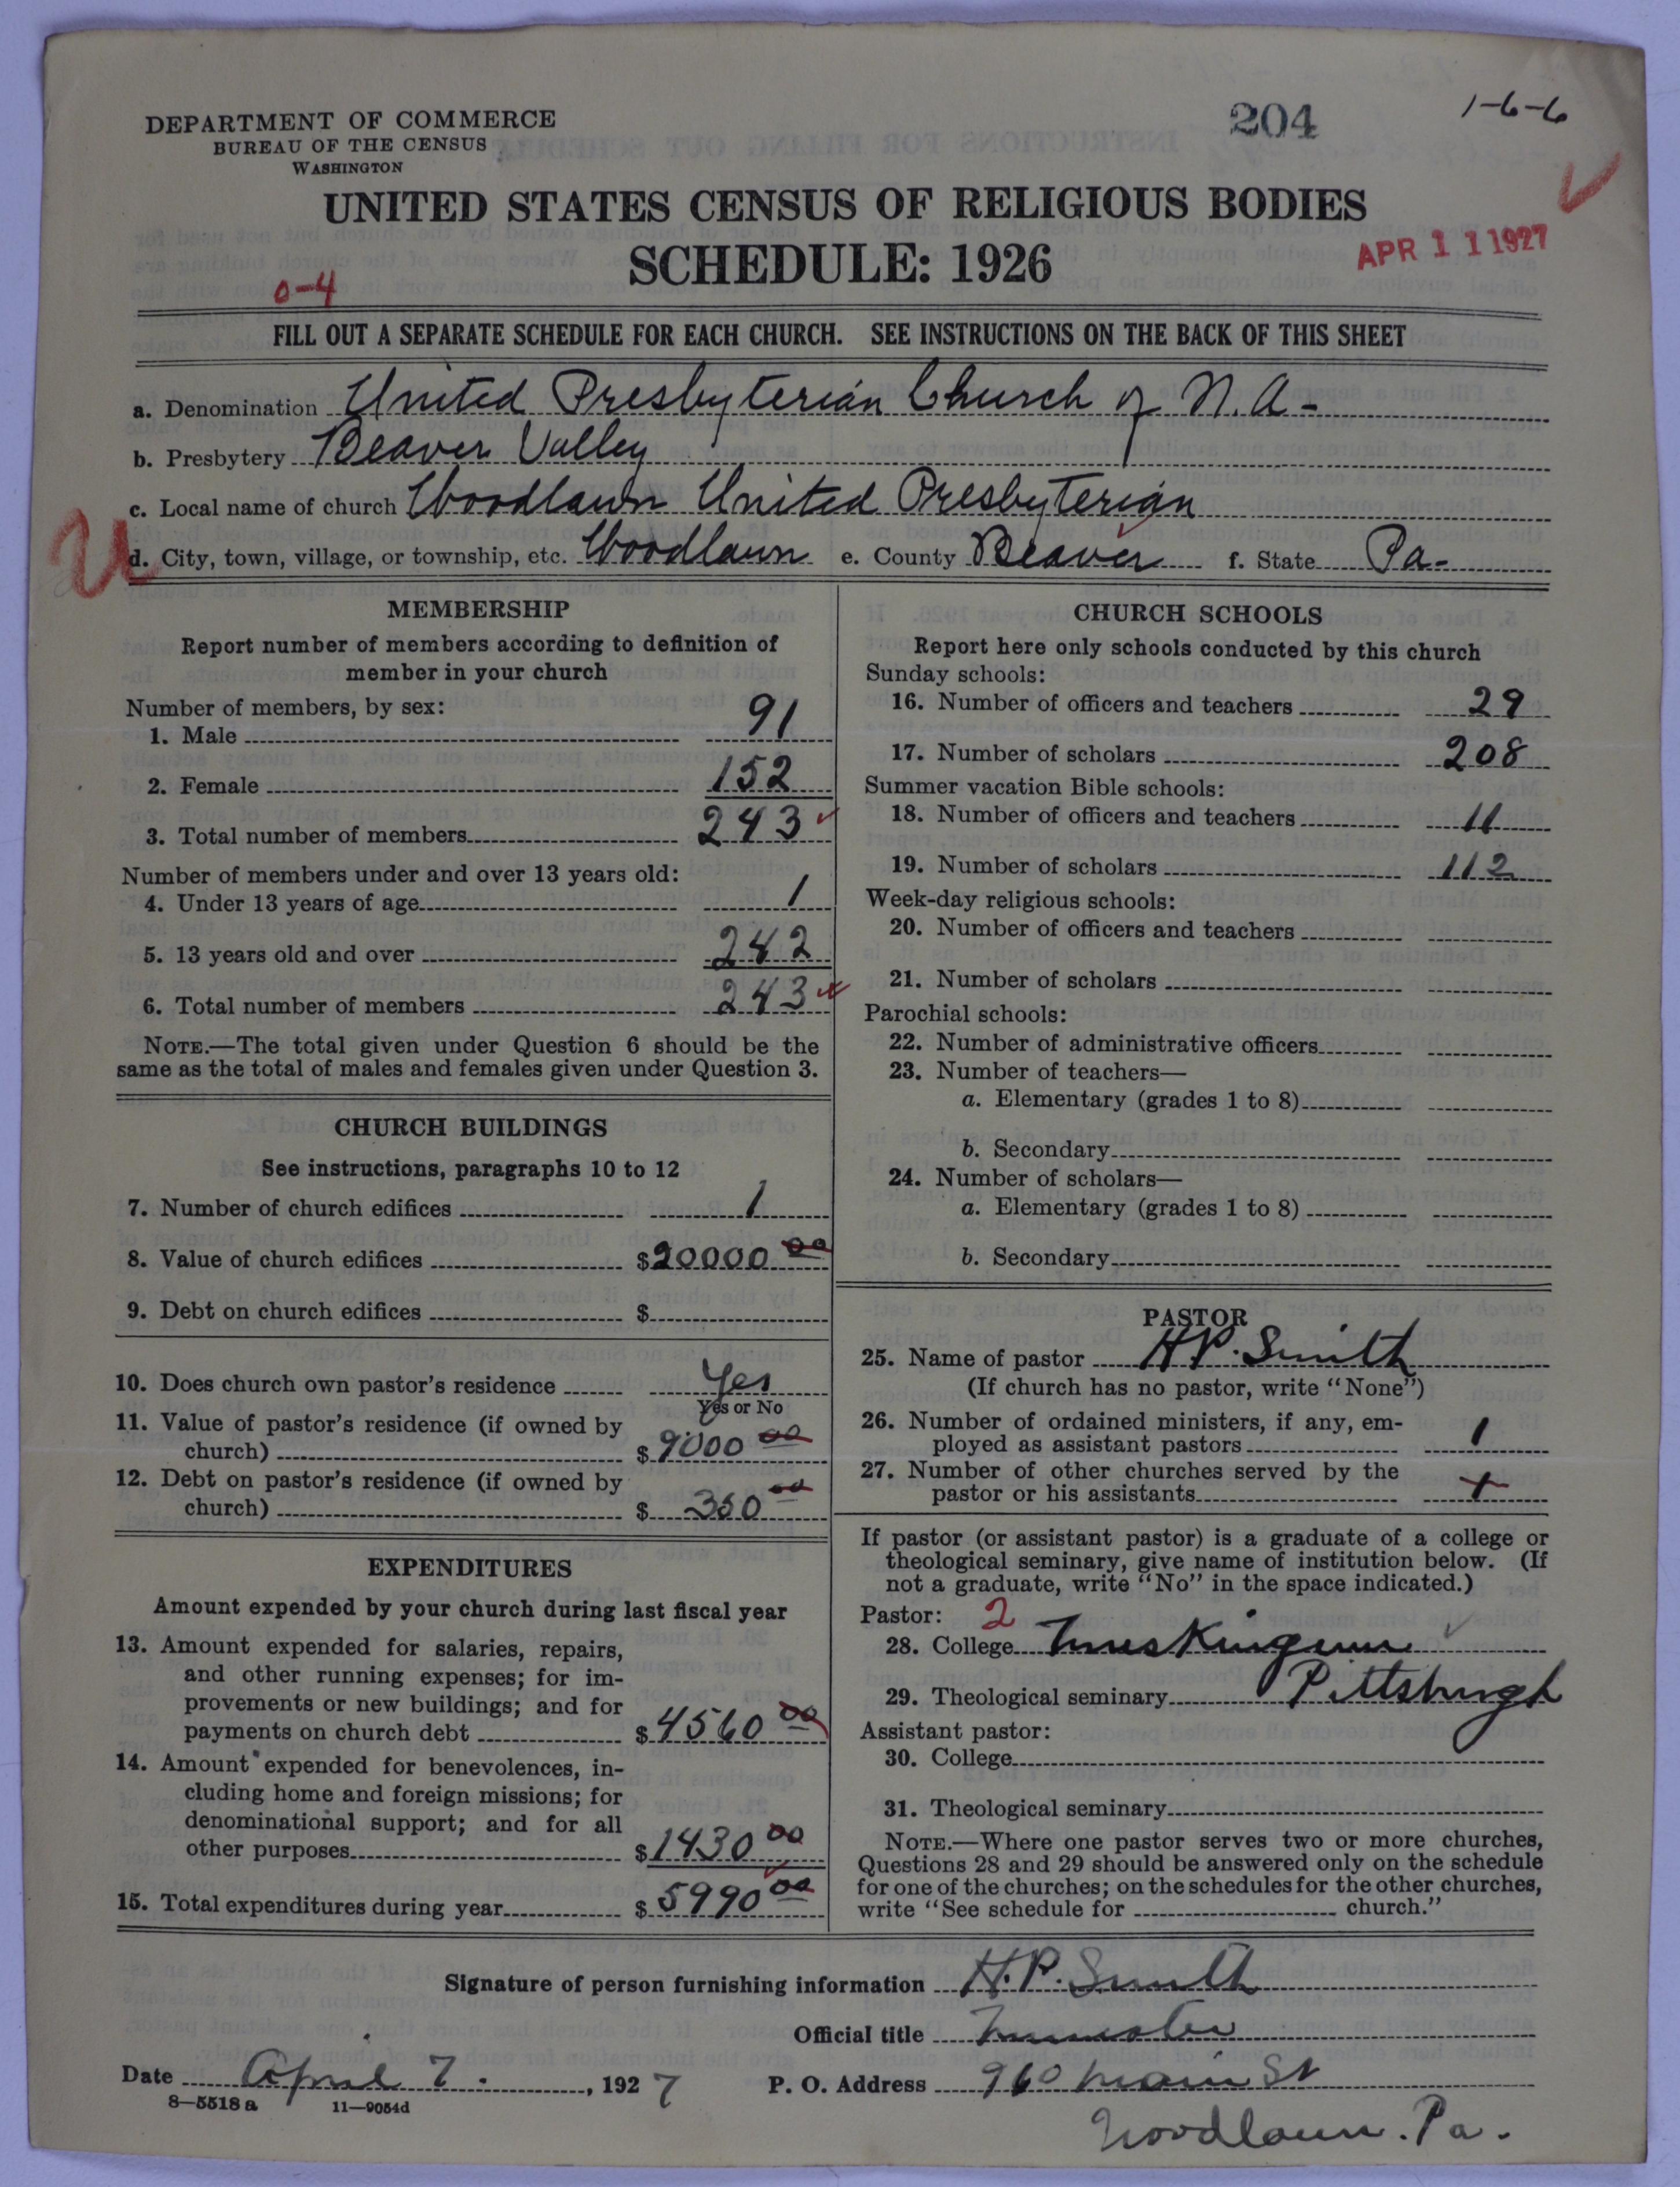 DEPARTMENT OF COMMERCE
BUREAU OF THE CENSUS
WASHINGTON
204
1-6-6
UNITED STATES CENSUS OF RELIGIOUS BODIES
SCHEDULE: 1926
APR 11 1927
0-4
FILL OUT A SEPARATE SCHEDULE FOR EACH CHURCH. SEE INSTRUCTIONS ON THE BACK OF THIS SHEET
a. Denomination United Presbyterian Church of N.A-
b. Presbytery Beaver Valley
c. Local name of church Woodlawn United Presbyterian
U
d. City, town, village, or township, etc. Woodlawn e. County Beaver f. State Pa-
MEMBERSHIP
Report number of members according to definition of
member in your church
Number of members, by sex:
1. Male 91
2. Female 152
3. Total number of members 243
Number of members under and over 13 years old:
4. Under 13 years of age 1
5. 13 years old and over 242
6. Total number of members 243
NOTE.—The total given under Question 6 should be the
same as the total of males and females given under Question 3.
CHURCH BUILDINGS
See instructions, paragraphs 10 to 12
7. Number of church edifices 1
8. Value of church edifices $20000 00
9. Debt on church edifices $
10. Does church own pastor's residence Yes
Yes or No
11. Value of pastor's residence (if owned by
church) $9000 00
12. Debt on pastor's residence (if owned by
church) $350 00
EXPENDITURES
Amount expended by your church during last fiscal year
13. Amount expended for salaries, repairs,
and other running expenses; for im-
provements or new buildings; and for
payments on church debt $4560 00
14. Amount expended for benevolences, in-
cluding home and foreign missions; for
denominational support; and for all
other purposes $1430 00
15. Total expenditures during year $5990 00
CHURCH SCHOOLS
Report here only schools conducted by this church
Sunday schools:
16. Number of officers and teachers 29
17. Number of scholars 208
Summer vacation Bible schools:
18. Number of officers and teachers 11
19. Number of scholars 112
Week-day religious schools:
20. Number of officers and teachers
21. Number of scholars
Parochial schools:
22. Number of administrative officers
23. Number of teachers—
a. Elementary (grades 1 to 8)
b. Secondary
24. Number of scholars—
a. Elementary (grades 1 to 8)
b. Secondary
PASTOR
25. Name of pastor H.P. Smith
(If church has no pastor, write "None")
26. Number of ordained ministers, if any, em-
ployed as assistant pastors 1
27. Number of other churches served by the
pastor or his assistants
If pastor (or assistant pastor) is a graduate of a college or
theological seminary, give name of institution below. (If
not a graduate, write "No" in the space indicated.)
Pastor: 2
28. College Muskingum
29. Theological seminary Pittsburgh
Assistant pastor:
30. College
31. Theological seminary
NOTE.—Where one pastor serves two or more churches,
Questions 28 and 29 should be answered only on the schedule
for one of the churches; on the schedules for the other churches,
write "See schedule for church."
Signature of person furnishing information H.P. Smith
Official title Minister
Date April 7. , 1927 P. O. Address 960 Main St
8-5518 a 11-9054d
Woodlawn. Pa.